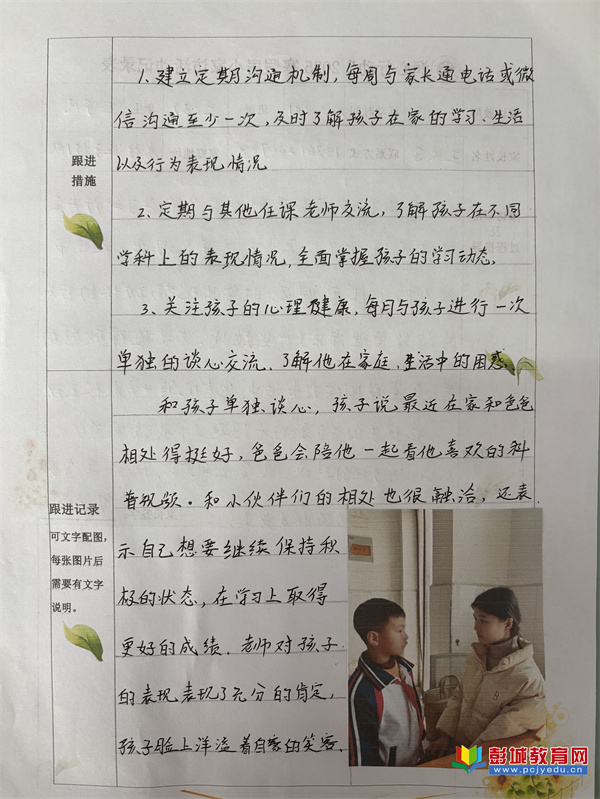 跟进
措施
1、建立定期沟通机制,每周与家长通电话或微
信沟通至少一次,及时了解孩子在家的学习、生活
以及行为表现情况
2、定期与其他任课老师交流,了解孩子在不同
学科上的表现情况,全面掌握孩子的学习动态。
3、关注孩子的心理健康,每月与孩子进行一次
单独的谈心交流、了解他在家庭、生活中的困惑、
跟进记录
可文字配图,
每张图片后
需要有文字
说明。
和孩子单独谈心,孩子说最近在家和爸爸
相处得挺好,爸爸会陪他一起看他喜欢的科
普视频。和小伙伴们的相处也很融洽,还表
示自己想要继续保持积
极的状态,在学习上取得
更好的成绩。老师对孩子
的表现表现了充分的肯定,
孩子脸上洋溢着自豪的笑容。
彭城教育网
www.pcjyedu.cn